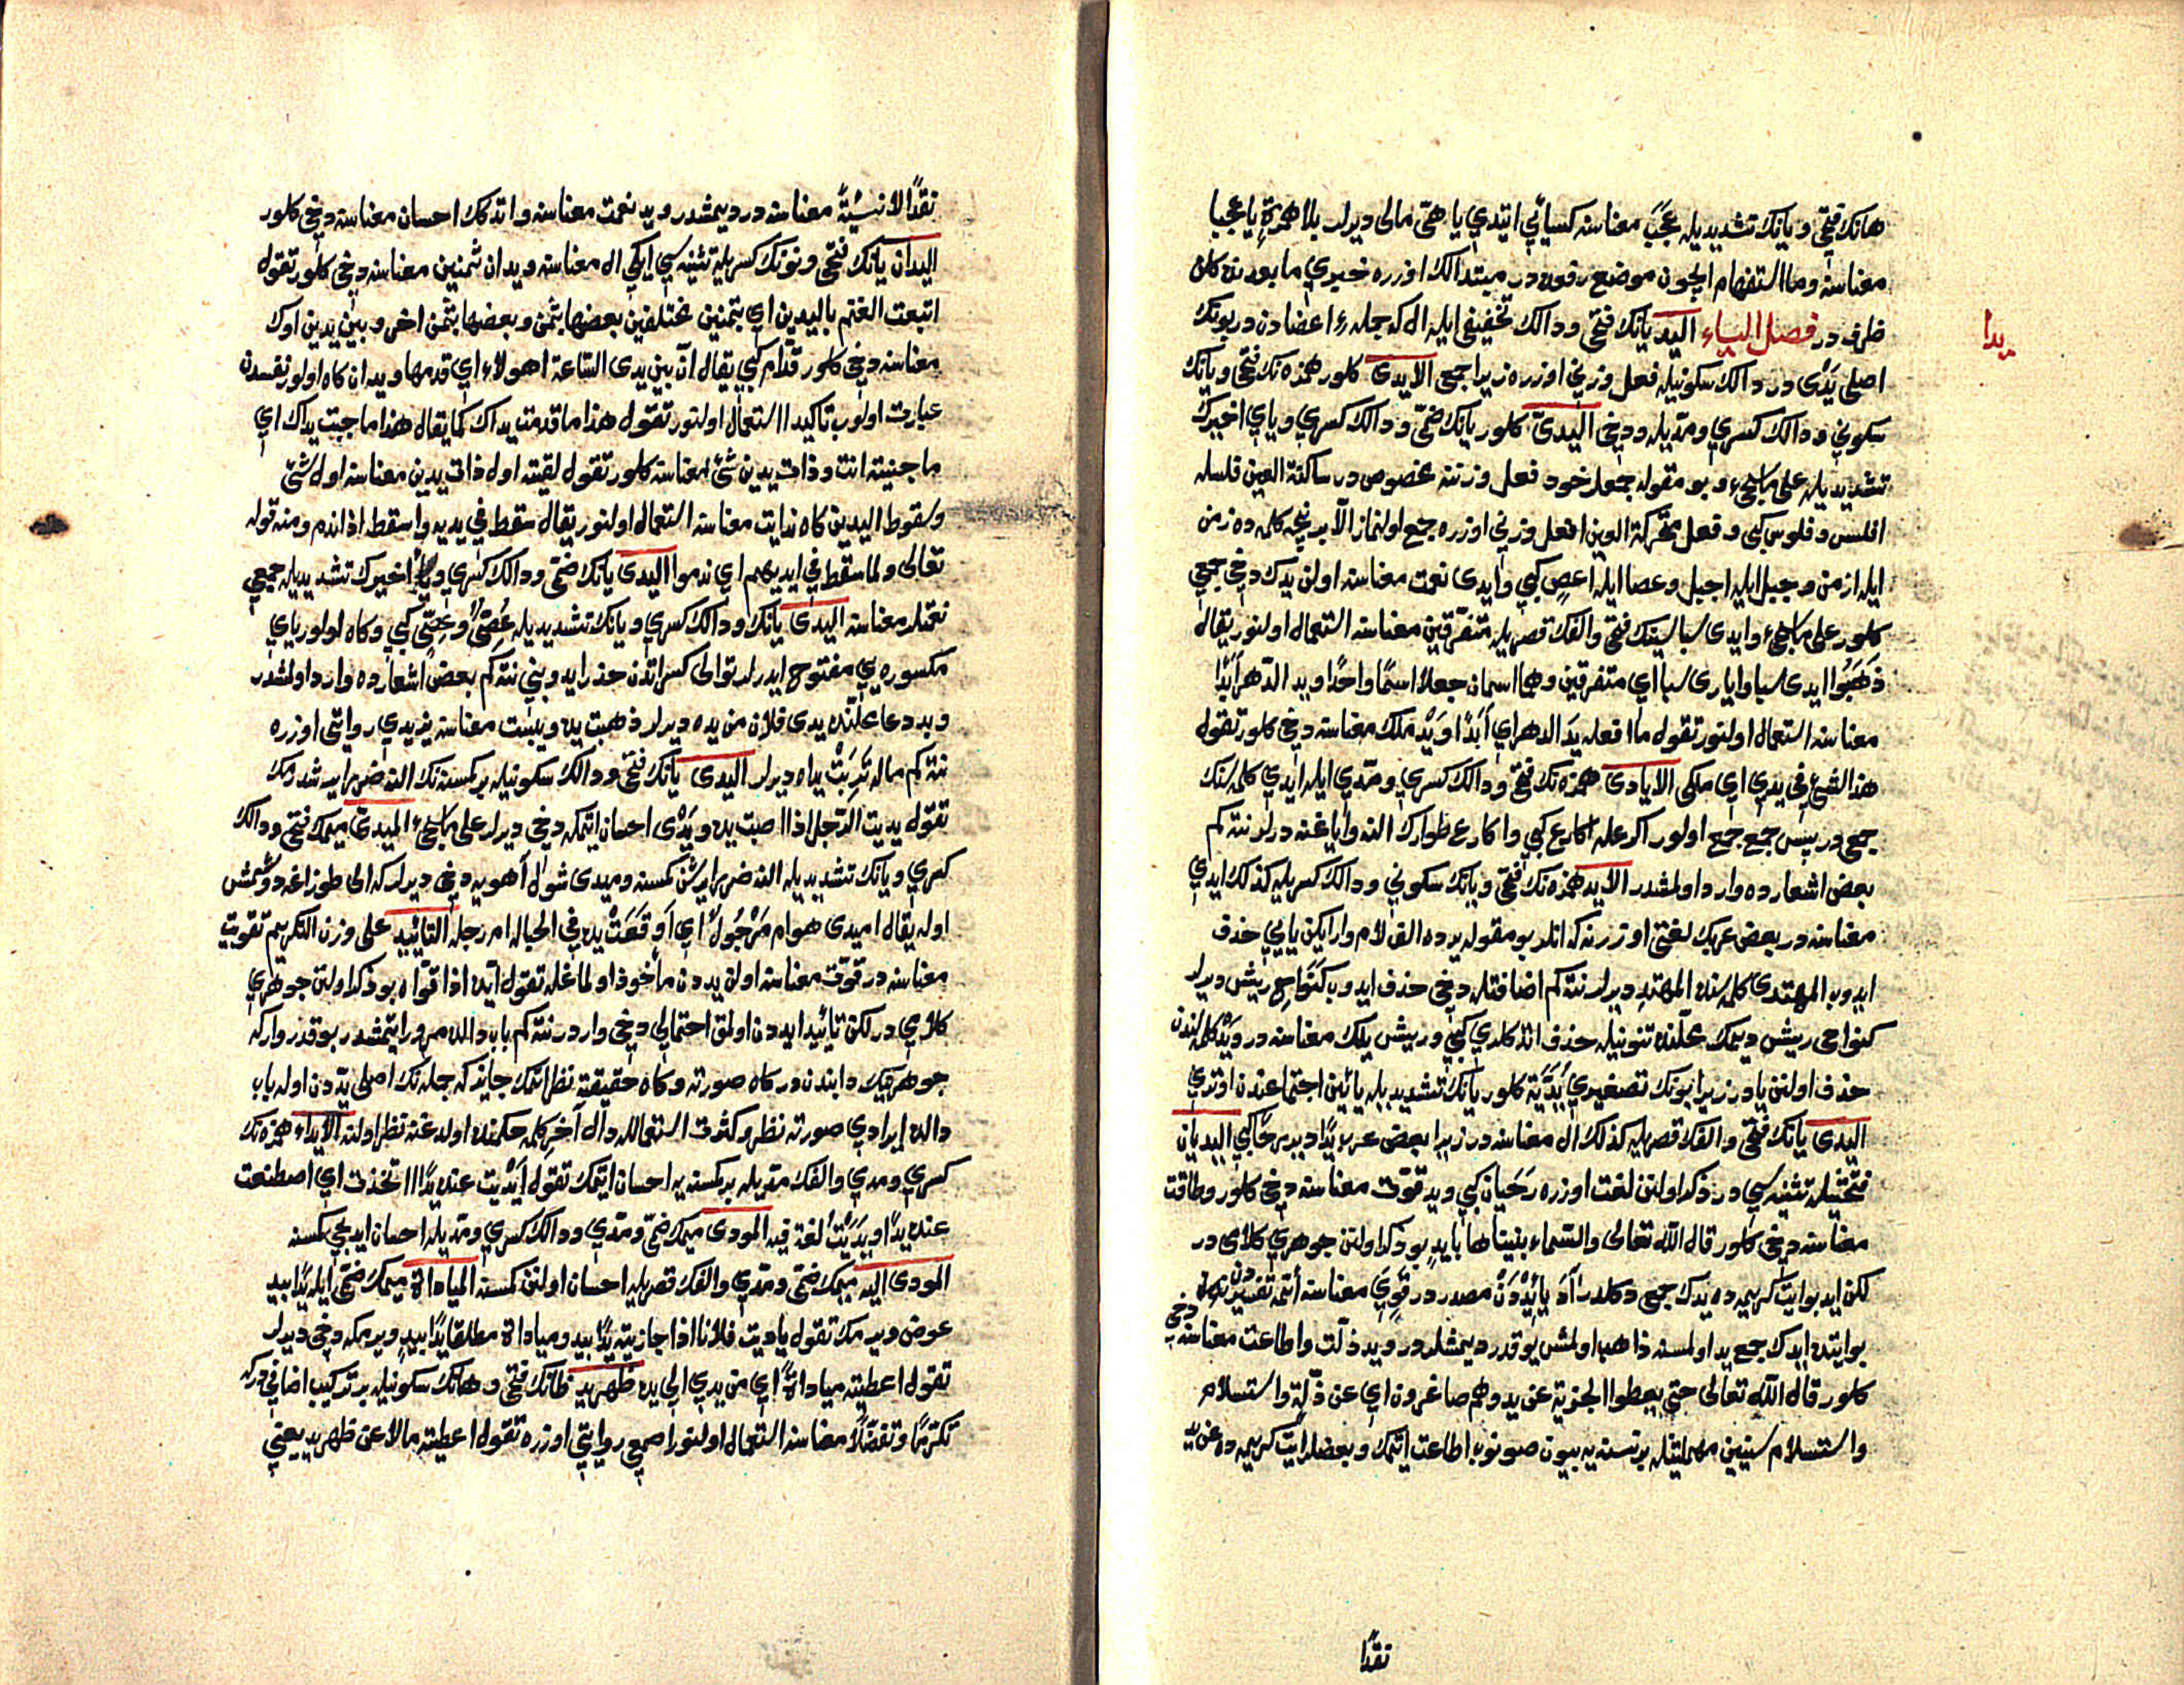 هانك فتحى و يانك تشديديله عجب معناسنه كسائى ايتدي يا هىّ مالى ديرلر بلا همزة يا عجبا
معناسنه وما استفهام ايچون موضع رفعده در مبتدالك اوزره خبري ما بعدنده كلن
ظرف در فصل الياء اليد يانك فتحى ودالك تخفيفى ايله ال كه جملهء اعضادن در بونك
يدا
اصلى يَدْى در دالك سكونيله فعل وزنى اوزره زيرا جمعى الايدى كلور همزه نك فتحى ويانك
سكونى ودالك كسري ومدّيله ودخى اليدىّ كلور يانك ضمّى ودالك كسري وياي اخيرك
تشديديله على ما يجىء وبو مقوله جمعلر خود فعل وزننه مخصوص در ساكنة العين فلسله
افلس وفلوس كبى وفعل محركة العين افعل وزنى اوزره جمع اولنماز الّا بر نيچه كلمه ده زمن
ايله ازمن وجبل ايله اجبل وعصا ايله اعصٍ كبى وايدى نعمت معناسنه اولن يدك دخى جمعى
كلور على ما يجىء وايدى سبا سينك فتحى والفك قصريله متفرّقين معناسنه استعمال اولنور يقال
ذهبوا ايدى سبا وايارى سبا اي متفرقين وهما اسمان جعلا اسمًا واحدًا ويد الدّهر أبدًا
معناسنه استعمال اولنور تقول ما افعله يد الدهر اي أبدًا ويَدْ ملك معناسنه دخى كلور تقول
هذا الشئ في يدي اي ملكى الايادى همزه نك فتحى ودالك كسري ومدّي ايله ايدي كلمه سنك
جمعى در پس جمع جمع اولور اكرعله اكارع كبى واكارع طوارك النه واياغنه درلر نته كم
بعض اشعارده وارد اولمشدر الايد همزه نك فتحى ويانك سكونى ودالك كسريله كذلك ايدي
معناسنه در بعض عربك لغتى اوزرنه كه انلر بو مقوله يرده الف لام وار ايكن يايى حذف
ايدوب المهتدى كلمه سنده المهتد ديرلر نته كم اضافتله دخى حذف ايدوب كنَوَاحِ ريش ديرلر
كنواحى ريش ديمك محلّنده تنونيله حذف اتدكلري كبى وريش يلك معناسنه در ويَدْ كلمه سندن
حذف اولنن يادر زيرا بونك تصغيري يُدَيّة كلور يانك تشديديله يائين اجتماعندن اوتري
اليدى يانك فتحى والفك قصريله كذلك ال معناسنه در زيرا بعض عرب يدًا دير رحًا كبى اليديان
فتحتيله تثنيه سي در ذكر اولنن لغت اوزره رحيان كبى ويد قوّت معناسنه دخى كلور وطاقت
معناسنه دخى كلور قال الله تعالى والسّماء بنيناها بايدٍ بو ذكر اولنن جوهري كلامى در
لكن ايد بو ايت كريمه ده يدك جمعى دكلدر آدَ يائيدُ دن مصدر در قَوِيَ معناسنه أئمّه تفسيردن
بو ايتده ايدك جمع يد اولمسنه ذاهب اولمش يوقدر ديمشلردر ويد ذلّت واطاعت معناسنه دخى
كلور قال الله تعالى حتى يعطوا الجزية عن يد وهم صاغرون اي عن ذلّة واستسلام
واستسلام سينين مهملتينله بر نسنه يه بيون صونوب اطاعت ايتمك وبعضلر ايت كريمه ده عن يدٍ
نقدًا
نقدًا لا نسيئةً معناسنه در ديمشدر ويد نعمت معناسنه واتدكك احسان معناسنه دخى كلور
اليدان يانك فتحى ونونك كسريله تثنيه سي ايكى ال معناسنه ويدان ثمنين معناسنه دخى كلور تقول
اتبعت الغنم باليدين اي بثمنين مختلفين بعضها بثمن وبعضها بثمن اخر وبين يدين اوك
معناسنه دخى كلور قدّام كبى يقال انّ بين يدى السّاعة اهوالاء اي قدّمها ويدان كاه اولور نفسدن
عبارت اولوب تاكيد استعمال اولنور تقول هذا ما قدمت يداك كما يقال هذا ما جنت يداك اي
ما جنيته انت وذات يدين شئ معناسنه كلور تقول لقيته اول ذات يدين معناسنه اول شئ
وسقوط اليدين كاه ندامت معناسنه استعمال اولنور يقال سقط في يديه واسقط اذا ندم ومنه قوله
تعالى ولما سقط في ايديهم اي ندموا اليدى يانك ضمّى ودالك كسري وياي اخيرك تشديديله جمعى
نعمتلر معناسنه اليدى يانك ودالك كسري ويانك تشديديله عُصىّ وعِصىّ كبى وكاه اولور ياي
مكسوره يي مفتوح ايدرلر توالى كسراتدن حذر ايدوبنى نته كم بعض اشعارده وارد اولمشدر
وبد دعا محلّنده يدى فلان من يده ديرلر ذهبت يده ويبست معناسنه يزيدي روايتى اوزره
نته كم ماله تَرِبَتْ يداه ديرلر اليدى يانك فتحى ودالك سكونيله بر كمسنه نك النه ضرر ايرشدرمك
تقول يديت الرّجل اذا اصبت يده ويَدْى احسان ايتمكه دخى ديرلر على ما يجىء الميدىّ ميمك فتحى ودالك
كسري ويانك تشديديله النه ضرر ايرشن كمسنه وميدى شول أهويه دخى ديرلر كه الى طوزاغه دوشمش
اوله يقال اميدى هو ام مَرْجُولٌ اي أوَقَعَتْ يده في الحباله ام رجله التائييد على وزن التكريم تقويت
معناسنه در قوّت معناسنه اولن يددن مأخوذ اولماغله تقول ايّده اذا قوّاه بو ذكر اولنن جوهري
كلامي در لكن تأييد ايددن اولمق احتمالى دخى واردر نته كم باب دالده مرور ايتمشدر بو قدر وار كه
جوهرينك دابندن در كاه صورته وكاه حقيقته نظر اتمك جايز كه جمله نك اصلى يَدْدن اوله باب
دالده ايرادي صورته نظر وكثرت استعماله دال آخر كلمه حكمنده اولدغنه نظر اولنه الايداء همزه نك
كسري ومدي والفك مدّيله بر كمسنه يه احسان ايتمك تقول أيْدَيْت عنده يدًا اتخذت اي اصطنعت
عنده يدًا ويَدَيْتُ لغة فيه المودى ميمك ضمّى ومدّي ودالك كسري ومدّيله احسان ايديجى كمسنه
المودى اليه ميمك ضمّى ومدّي والفك قصريله احسان اولنن كمسنه المياداة ميمك ضمّى ايله يدًا بيد
عوض ويرمك تقول ياديت فلانا اذا جازيته يدًا بيد ومياداة مطلقا يدًا بيدٍ ويرمكه دخى ديرلر
تقول اعطيته مياداةً اي من يدي الى يده ظهر يد ظانك فتحى وهانك سكونيله بر تركيب اضافى در كه
تكرّمًا وتفضّلًا معناسنه استعمال اولنور اصمعى روايتى اوزره تقول اعطيته مالا عن ظهر يد يعنى